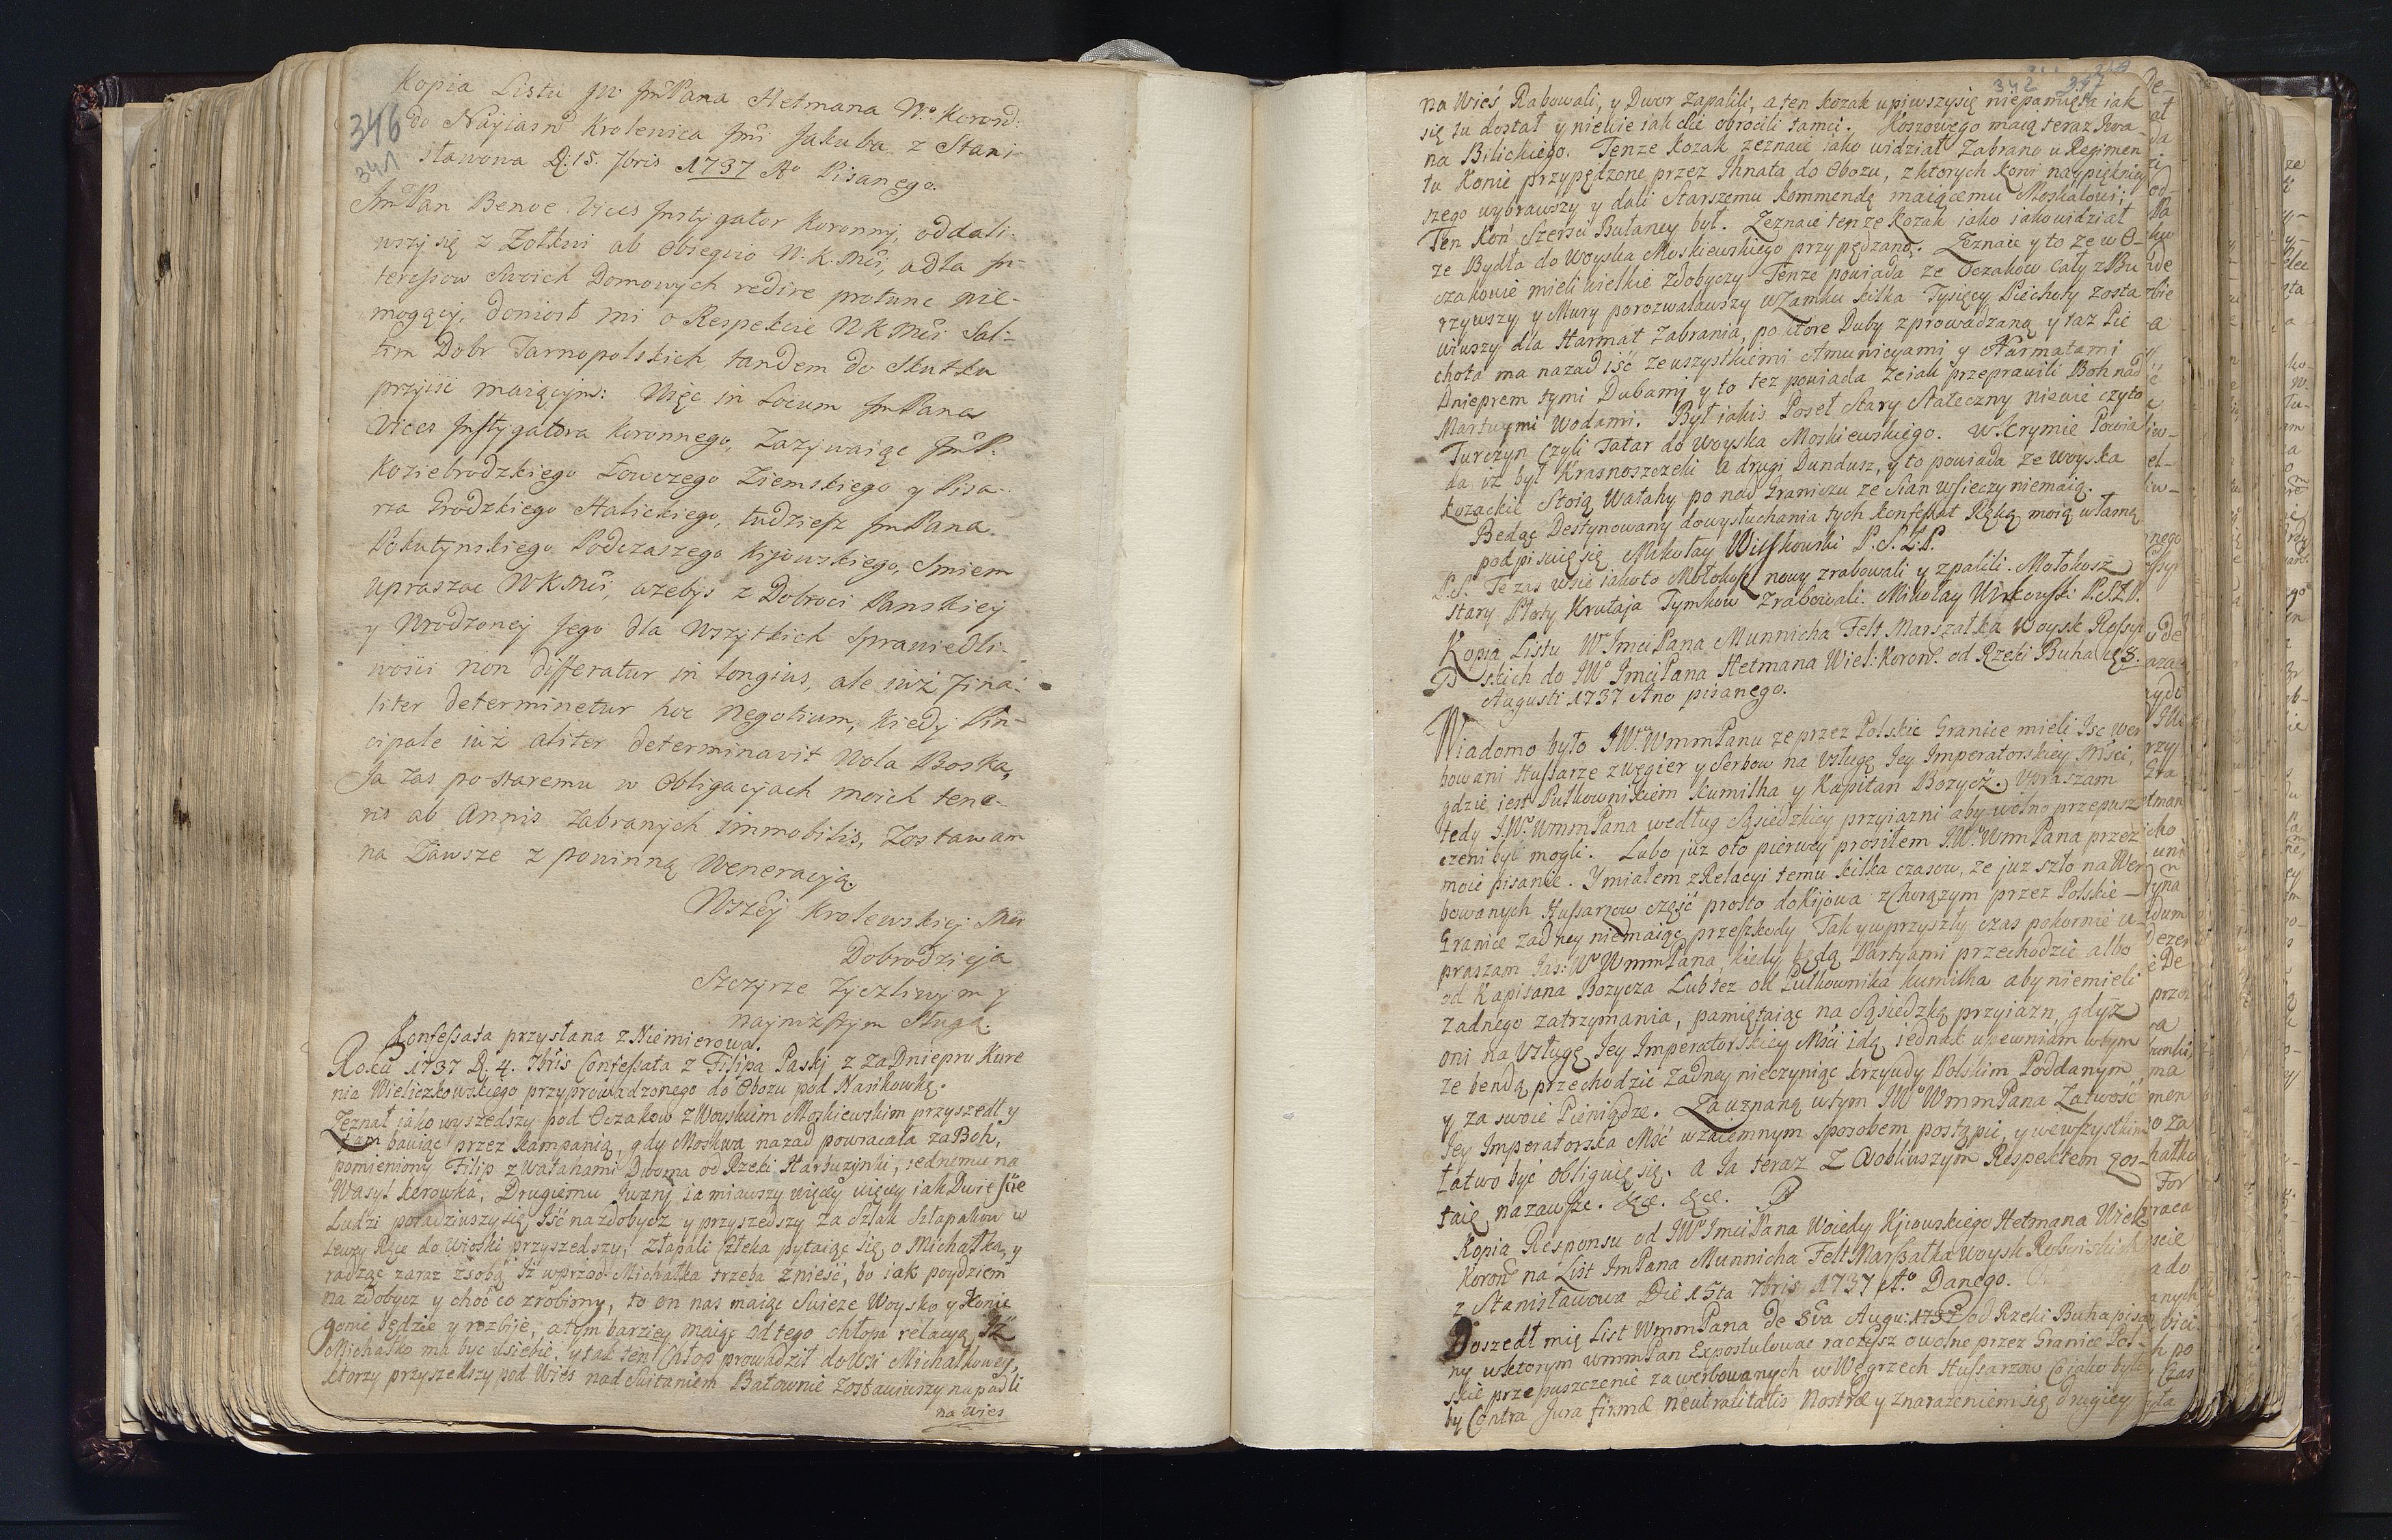 Kopia Listu JW JmPana Hetmana Wo Koron:
346 do Nayiasn Krolewica Jmci Jakuba z Stani-
341 sławowa D: 15. 7bris 1737 Ao Pisanego.
JmPan Benoe Vices Instygator Koronny, oddali-
wszy się z Zołkwi ab obsequio W. K. Mci, a dla In-
teressow Swoich Domowych redire protunc nie-
mogący, doniosł mi o Respekcie WKMci Sal-
tim Dobr Tarnopolskich, tandem do Skutku
przyiść maiącym: Więc in Locum JmPana
Vices Instygatora Koronnego, Zazywaiąc JmP.
Koziebrodzkiego Łowczego Ziemskiego y Pisa-
rza Grodzkiego Halickiego, tudziesz JmPana
Pokutynskiego Podczaszego Kijowskiego, Smiem
upraszac WKMci, azebys z Dobroci Panskiey
y Wrodzoney Jego dla Wszytkich Sprawiedli-
wosci non differatur in longius, ale iuż fina-
liter determinetur hoc Negotium, Kiedy Prin-
cipale iuż aliter determinavit Wola Boska,
Ja zas po staremu w Obligacyach moich tene-
ris ab Annis zabranych immobilis, Zostawam
na Zawsze z powinną Weneracyą.
Wszey Krolewskiej Mci
Dobrodzieja
Szczyrze Zyczliwym y
Nayniższym Sługą.
Konfessata przysłana z Niemierowa.
Roku 1737 D. 4. 7bris Confessata z Filipa Paskj z za Dniepru Kure
nia Wieliczkowskiego przyprowadzonego do Obozu pod Nasikowkę.
Zeznał iako wyszedszy pod Oczakow z Woyskiem Moskiewskim przyszedł y
tam bawiąc przez Kampanią, gdy Moskwa nazad powracała za Boh,
pomieniony Filip z Watahami Dwoma od Rzeki Harbuzinki, iednemu na
Wasyl Kerowka, Drugiemu Jwany ia miawszy więcey iak Dwie Scie
Ludzi poradziwszy się Iść na zdobycz y przyszedszy za Szlak Szłapakow w
Lewy Ręce do Wioski przyszedszy, Złapali Człeka pytaiąc się o Michałka, y
radząc zaraz zsobą Iż wprzod Michałka trzeba znieść, bo iak poydziem
na zdobycz y choć co zrobimy, to on nas maiąc Swieze Woysko y Konie
gonic będzie y rozbije, a tym barziey maiąc od tego chłopa relacyą, Iż
Michałko ma byc usiebie, y tak ten Chłop prowadził do Wsi Michałkowey,
ktorzy przyszedszy pod Wieś nad Switaniem Batownie zostawiwszy napadli
na wies
342 347
na Wieś Rabowali, y Dwor zapalili, a ten Kozak upiwszysię niepamięta iak
się tu dostał y niewie iakdzie obrocili tamci. Koszowego maią teraz Jwa-
na Bilickiego. Tenze Kozak zeznaie iako widział Zabrano u Regimen
tu Konie przypędzone przez Ihnata do Obozu, z ktorych koni naypięknie
szego wybrawszy y dali Starszemu Kommendę maiącemu Moskalowi;
Ten Koń Szersci Bułaney był. Zeznaie tenze Kozak iako iakowidział
ze Bydła do Woyska Moskiewskiego przypędzano. Zeznaie y to ze w O-
czakowie mieli wielkie zdobyczy Tenze powiada ze Oczakow cały zBu
rzywszy y Mury porozwalawszy w Zamku kilka Tysięcy Piechoty zosta
wiwszy dla Harmat Zabrania, po ktore Duby zprowadzaną y taz Pie
chota ma nazad iść ze wszystkiemi Amunicyami y Harmatami
Dnieprem tymi Dubami, y to tez powiada ze iak przeprawili Boh nad
Martwymi Wodami. Był iakis Poseł Stary Stateczny niewie czy to
Turczyn Czyli Tatar do Woyska Moskiewskiego. W Krymie Powia
da iż był Krasnoszczeki A drugi Dundusz, y to powiada ze Woyska
Kozackie Stoią Watahy po nad Graniczu ze Sian w Sieczy niemaią.
Będąc Destynowany do wysłuchania tych Konfessat Ręką moią własną
podpisuię się Mikołay Witkowski P.S.L.P.
P.S. Te zas wsie iako to Mołokosz nowy zrabowali y zpalili. Mołokosz
stary Płoty Krutaja Tymkow Zrabowali. Mikołay Witkowski P.S.L.P.
Kopia Listu W ImciPana Munnicha Felt Marszałka Woysk Rossyi
skich do JW ImciPana Hetmana Wiel: Koron. od Rzeki Buha D 8.
Augusti 1737 Ano pisanego.
Wiadomo było JW WmmPanu ze przez Polskie Granice mieli Isc wer
bowani Hussarze z Węgier y Serbow na Usługę Jey Imperatorskiey Mści,
gdzie iest Pułkownikiem Kumilha y Kapitan Bozycz. Upraszam
tedy JW WmmPana według Sąsiedzkiey przyiazni aby wolno przepusz
czeni być mogli. Lubo już oto pierwey prosiłem JW WmmPana przez
moie pisanie. Y miałem z Relacyi temu kilka czasow, ze juz szło na Wer
bowanych Hussarzow część prosto do Kijowa z Chorązym przez Polskie
Granice zadney niemaiąc przeszkody Tak y w przyszły czas pokornie u-
praszam Jas: W WmmPana, kiedy będą Partyami przechodzic albo
od Kapitana Bozycza Lub tez od Pułkownika Kumilha aby niemieli
zadnego zatrzymania, pamiętaiąc na Sąsiedzką przyiazn, gdyż
oni na Usługę Jey Imperatorskiey Mści idą iednak upewniam wtym
ze bendą przechodzic zadney nieczyniąc krzywdy Polskim Poddanym
y za swoie Pieniądze. Za uznaną wtym JW WmmPana Łatwość
Jey Imperatorska Mść wzaiemnym sposobem postąpić, y wewszystkim
Łatwo być obliguię się. a Ja teraz Z Osobliwszym Respektem zos-
taię nazawsze. &c. &c.
Kopia Responsu od JW ImciPana Woiedy Kjiowskiego Hetmana Wiel:
Koron na List ImPana Munnicha Felt Marszałka Woysk Rossyiskich
z Stanisławowa Die 15ta 7bris 1737 Ao Danego.
Doszedł mię List WmmPana de 8va Augu: 1737 od Rzeki Buha pisa
ny wktorym WmmPan Expostulowac raczysz o wolne przez Granice Pol-
skie przepuszczenie zawerbowanych w Węgrzech Hussarzow Co iako było
by Contra Jura firmæ neutralitatis Nostræ y znarazeniem się drugiey